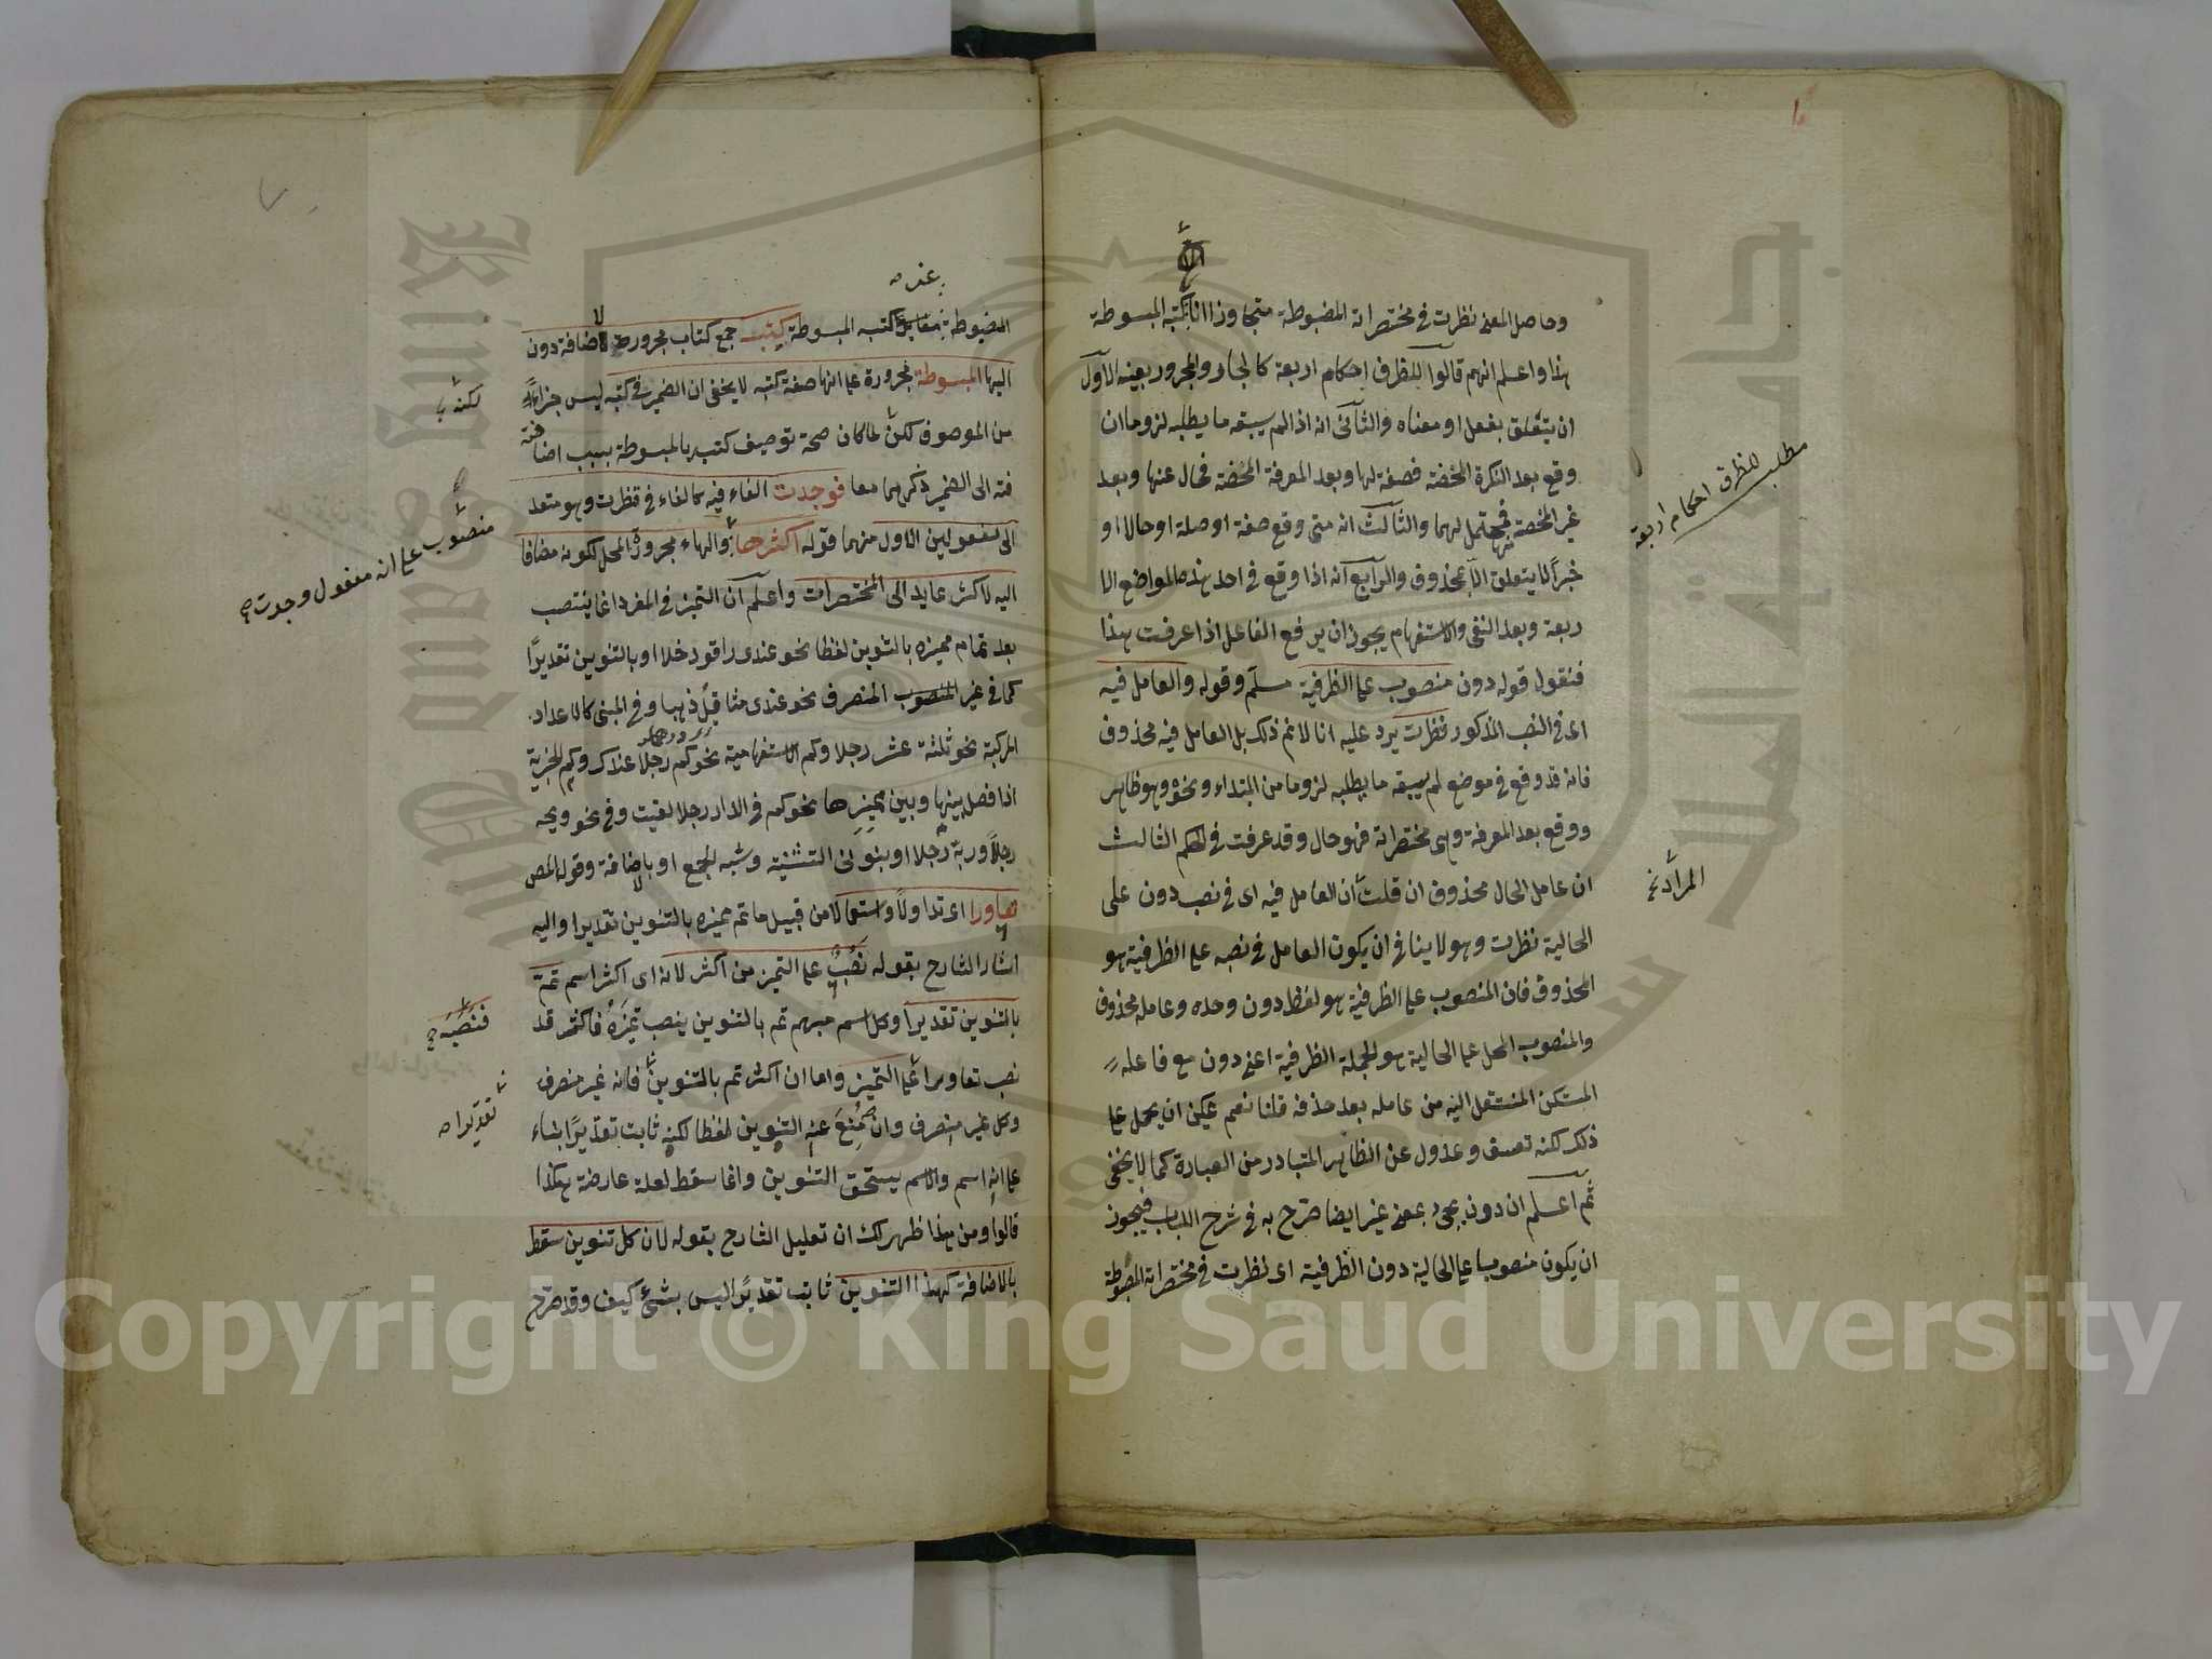 وحاصل المعنى نظرت في مختصراته المضبوطة متجاوزا انا كتبه المبسوطة
هذا واعلم انهم قالوا للظرف احكام اربعة كالجار والمجرور بعينه الاول
ان يتعلق بفعل او معناه والثاني انه اذا لم يسبقه ما يطلبه لزوما ان
وقع بعد النكرة المحضة فصفة لها وبعد المعرفة المحضة فحال عنها وبعد
غير المحضة فمحتمل لهما والثالث انه متى وقع صفة او صلة او حالا او
خبرا لا يتعلق الا بمحذوف والرابع انه اذا وقع في احد هذه المواضع الا
ربعة وبعد النفى والاستفهام يجوز ان يرفع الفاعل اذا عرفت هذا
فنقول قوله دون منصوب على الظرفية مسلم وقوله والعامل فيه
اى في النصب المذكور نظرت يرد عليه انا لا نم ذلك بل العامل فيه محذوف
فانه قد وقع في موضع لم يسبقه ما يطلبه لزوما من المبتداء ونحوه وهو ظاهر
ووقع بعد المعرفة وهى مختصراته فهو حال وقد عرفت في الحكم الثالث
ان عامل الحال محذوف ان قلت ان العامل فيه اى في نصب دون على
الحالية نظرت وهو لا ينافى ان يكون العامل في نصبه على الظرفية هو
المحذوف فان المنصوب على الظرفية هو لفظ دون وحده وعامله محذوف
والمنصوب المحل على الحالية هو الجملة الظرفية اعنى دون مع فاعله
المستكن المنتقل اليه من عامله بعد حذفه قلنا نعم يمكن ان يحمل على
ذلك لكنه تعسف وعدول عن الظاهر المتبادر من العبارة كما لا يخفى
ثم اعلم ان دون يجئ بمعنى غير ايضا صرح به في شرح اللباب فيجوز
ان يكون منصوبا على الحالية دون الظرفية اى نظرت في مختصراته المضبوطة
مطلب للظرف احكام اربعة
المراد
المضبوطة كتبه المبسوطة كتب جمع كتاب مجرورة لاضافة دون
اليها المبسوطة مجرورة على انها صفة كتبه لا يخفى ان الضمير في كتبه ليس جزأ
من الموصوف لكن لما كان صحة توصيف كتبه بالمبسوطة بسبب اضا
فته الى الضمير ذكرهما معا فوجدت الفاء فيه كالفاء في فنظرت وهو متعد
الى مفعولين الاول منهما قوله اكثرها والهاء مجرورة المحل لكونه مضافا
اليه لاكثر عايد الى المختصرات واعلم ان التميز في المفرد انما ينتصب
بعد تمام مميزه بالتنوين لفظا نحو عندى راقود خلا او بالتنوين تقديرا
كما في غير المنصوب المنصرف نحو عندى مثاقيل ذهبا وفي المبنى كالاعداد
المركبة نحو ثلثة عشر رجلا وكم الاستفهامية نحو كم رجلا عندك وكم الخبرية
اذا فصل بينها وبين مميزها نحو كم في الدار رجلا لقيت وفي نحو ويحه
رجلا وربه رجلا او بنونى التثنية وشبه الجمع او باضافة وقول المص
تعاورا اى تداولا واستعمالا من قبيل ما تم مميزه بالتنوين تقديرا واليه
اشار الشارح بقوله نصب على التميز من اكثر لانه اى اكثر اسم تم
بالتنوين تقديرا وكل اسم مبهم تم بالتنوين ينصب تميزه فاكثر قد
نصب تعاورا على التميز واما ان اكثر تم بالتنوين فانه غير منصرف
وكل غير منصرف وان منع عنه التنوين لفظا لكنه ثابت تقديرا بناء
على انه اسم والاسم يستحق التنوين وانما سقط لعلة عارضة هكذا
قالوا ومن هذا ظهر لك ان تعليل الشارح بقوله لان كل تنوين سقط
بالاضافة كهذا التنوين ثابت تقديرا ليس بشئ كيف وقد صرح
لكنه
منصوب على انه مفعول وجدت
فنصبه
تقديرا
جامعة الملك سعود
King Saud University
Copyright © King Saud University